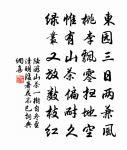 東園三日雨兼風
桃李飄零扫地空
惟有山茶偏耐久
绿叢又放数枝红
陸游山茶一樹自冬至
清明後著花不已詞典
網